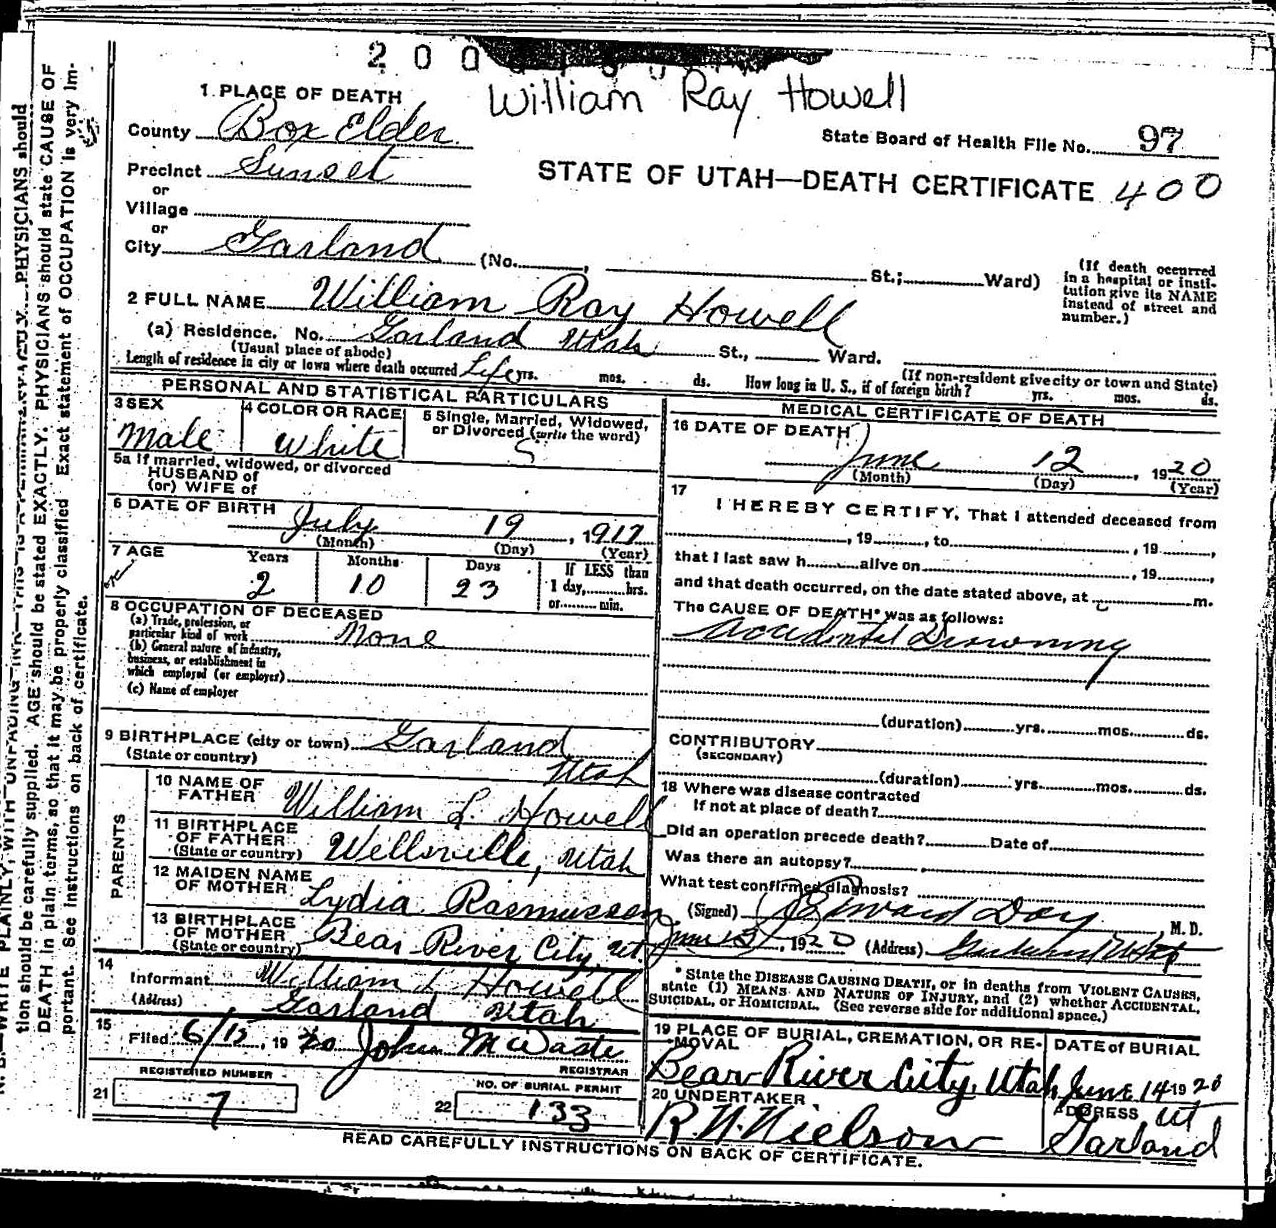 200
William Ray Howell
1 PLACE OF DEATH
County Box Elder
State Board of Health File No. 97
Precinct Sunset
STATE OF UTAH—DEATH CERTIFICATE 400
or
Village
or
City Garland (No. , St.; Ward)
(If death occurred in a hospital or institution give its NAME instead of street and number.)
2 FULL NAME William Ray Howell
(a) Residence. No. Garland Utah St., Ward.
(Usual place of abode)
(If non-resident give city or town and State)
Length of residence in city or town where death occurred Life yrs. mos. ds. How long in U. S., if of foreign birth? yrs. mos. ds.
PERSONAL AND STATISTICAL PARTICULARS
3 SEX
Male
4 COLOR OR RACE
White
5 Single, Married, Widowed,
or Divorced (write the word)
S
5a If married, widowed, or divorced
HUSBAND of
(or) WIFE of
6 DATE OF BIRTH
July 19, 1917
(Month) (Day) (Year)
7 AGE Years Months Days If LESS than
2 10 23 1 day, hrs.
or min.
8 OCCUPATION OF DECEASED
(a) Trade, profession, or
particular kind of work None
(b) General nature of industry,
business, or establishment in
which employed (or employer)
(c) Name of employer
9 BIRTHPLACE (city or town) Garland
(State or country) Utah
PARENTS
10 NAME OF
FATHER William L. Howell
11 BIRTHPLACE
OF FATHER
(State or country) Wellsville, Utah
12 MAIDEN NAME
OF MOTHER Lydia Rasmussen
13 BIRTHPLACE
OF MOTHER
(State or country) Bear River City, Ut.
14
Informant William L Howell
(Address) Garland Utah
15
Filed 6/15, 1920 John M Waste
REGISTRAR
REGISTERED NUMBER
21 7
NO. OF BURIAL PERMIT
22 133
MEDICAL CERTIFICATE OF DEATH
16 DATE OF DEATH
June 12, 1920
(Month) (Day) (Year)
17
I HEREBY CERTIFY, That I attended deceased from
, 19 , to , 19 ,
that I last saw h alive on , 19 ,
and that death occurred, on the date stated above, at m.
The CAUSE OF DEATH* was as follows:
Accidental Drowning
(duration) yrs. mos. ds.
CONTRIBUTORY
(SECONDARY)
(duration) yrs. mos. ds.
18 Where was disease contracted
If not at place of death?
Did an operation precede death? Date of
Was there an autopsy?
What test confirmed diagnosis?
(Signed) Edward Day M. D.
June, 1920 (Address)
* State the DISEASE CAUSING DEATH, or in deaths from VIOLENT CAUSES,
state (1) MEANS AND NATURE OF INJURY, and (2) whether ACCIDENTAL,
SUICIDAL, or HOMICIDAL. (See reverse side for additional space.)
19 PLACE OF BURIAL, CREMATION, OR RE-
MOVAL
Bear River City, Utah
DATE of BURIAL
June 14 1920
20 UNDERTAKER
R. N. Nielson
ADDRESS Ut
Garland
READ CAREFULLY INSTRUCTIONS ON BACK OF CERTIFICATE.
N. B.—WRITE PLAINLY, WITH UNFADING INK—THIS IS A PERMANENT
tion should be carefully supplied. AGE should be stated EXACTLY. PHYSICIANS should
DEATH in plain terms, so that it may be properly classified. Exact statement of OCCUPATION is very im-
portant. See instructions on back of certificate.